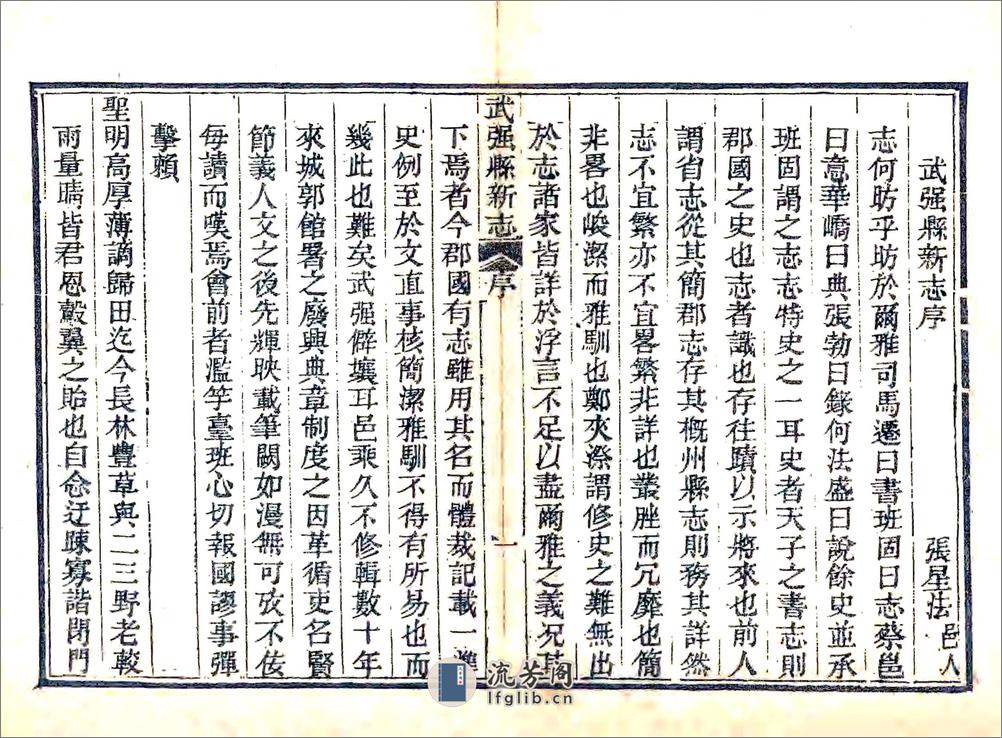 武强縣新志序
張星法邑人
志何昉乎昉於爾雅司馬遷曰書班固曰志蔡邕
曰意華嶠曰典張勃曰錄何法盛曰說餘史並承
班固謂之志志特史之一耳史者天子之書志則
郡國之史也志者識也存往蹟以示將來也前人
謂省志從其簡郡志存其概州縣志則務其詳然
志不宜繁亦不宜畧繁非詳也叢脞而冗靡也簡
非畧也峻潔而雅馴也鄭夾漈謂修史之難無出
於志諸家皆詳於浮言不足以盡爾雅之義况其
武强縣新志 序 一
下焉者今郡國有志雖用其名而體裁記載一準
史例至於文直事核簡潔雅馴不得有所易也而
幾此也難矣武强僻壤耳邑乘久不修輯數十年
來城郭館署之廢興典章制度之因革循吏名賢
節義人文之後先輝映載筆闕如漫無可攷不佞
每讀而嘆焉曾前者濫竽臺班心切報國謬事彈
擊賴
聖明高厚薄謫歸田迄今長林豐草與二三野老較
雨量晴皆君恩轂翼之貽也自念迂疎寡諧閉門
流芳阁
lfglib.cn